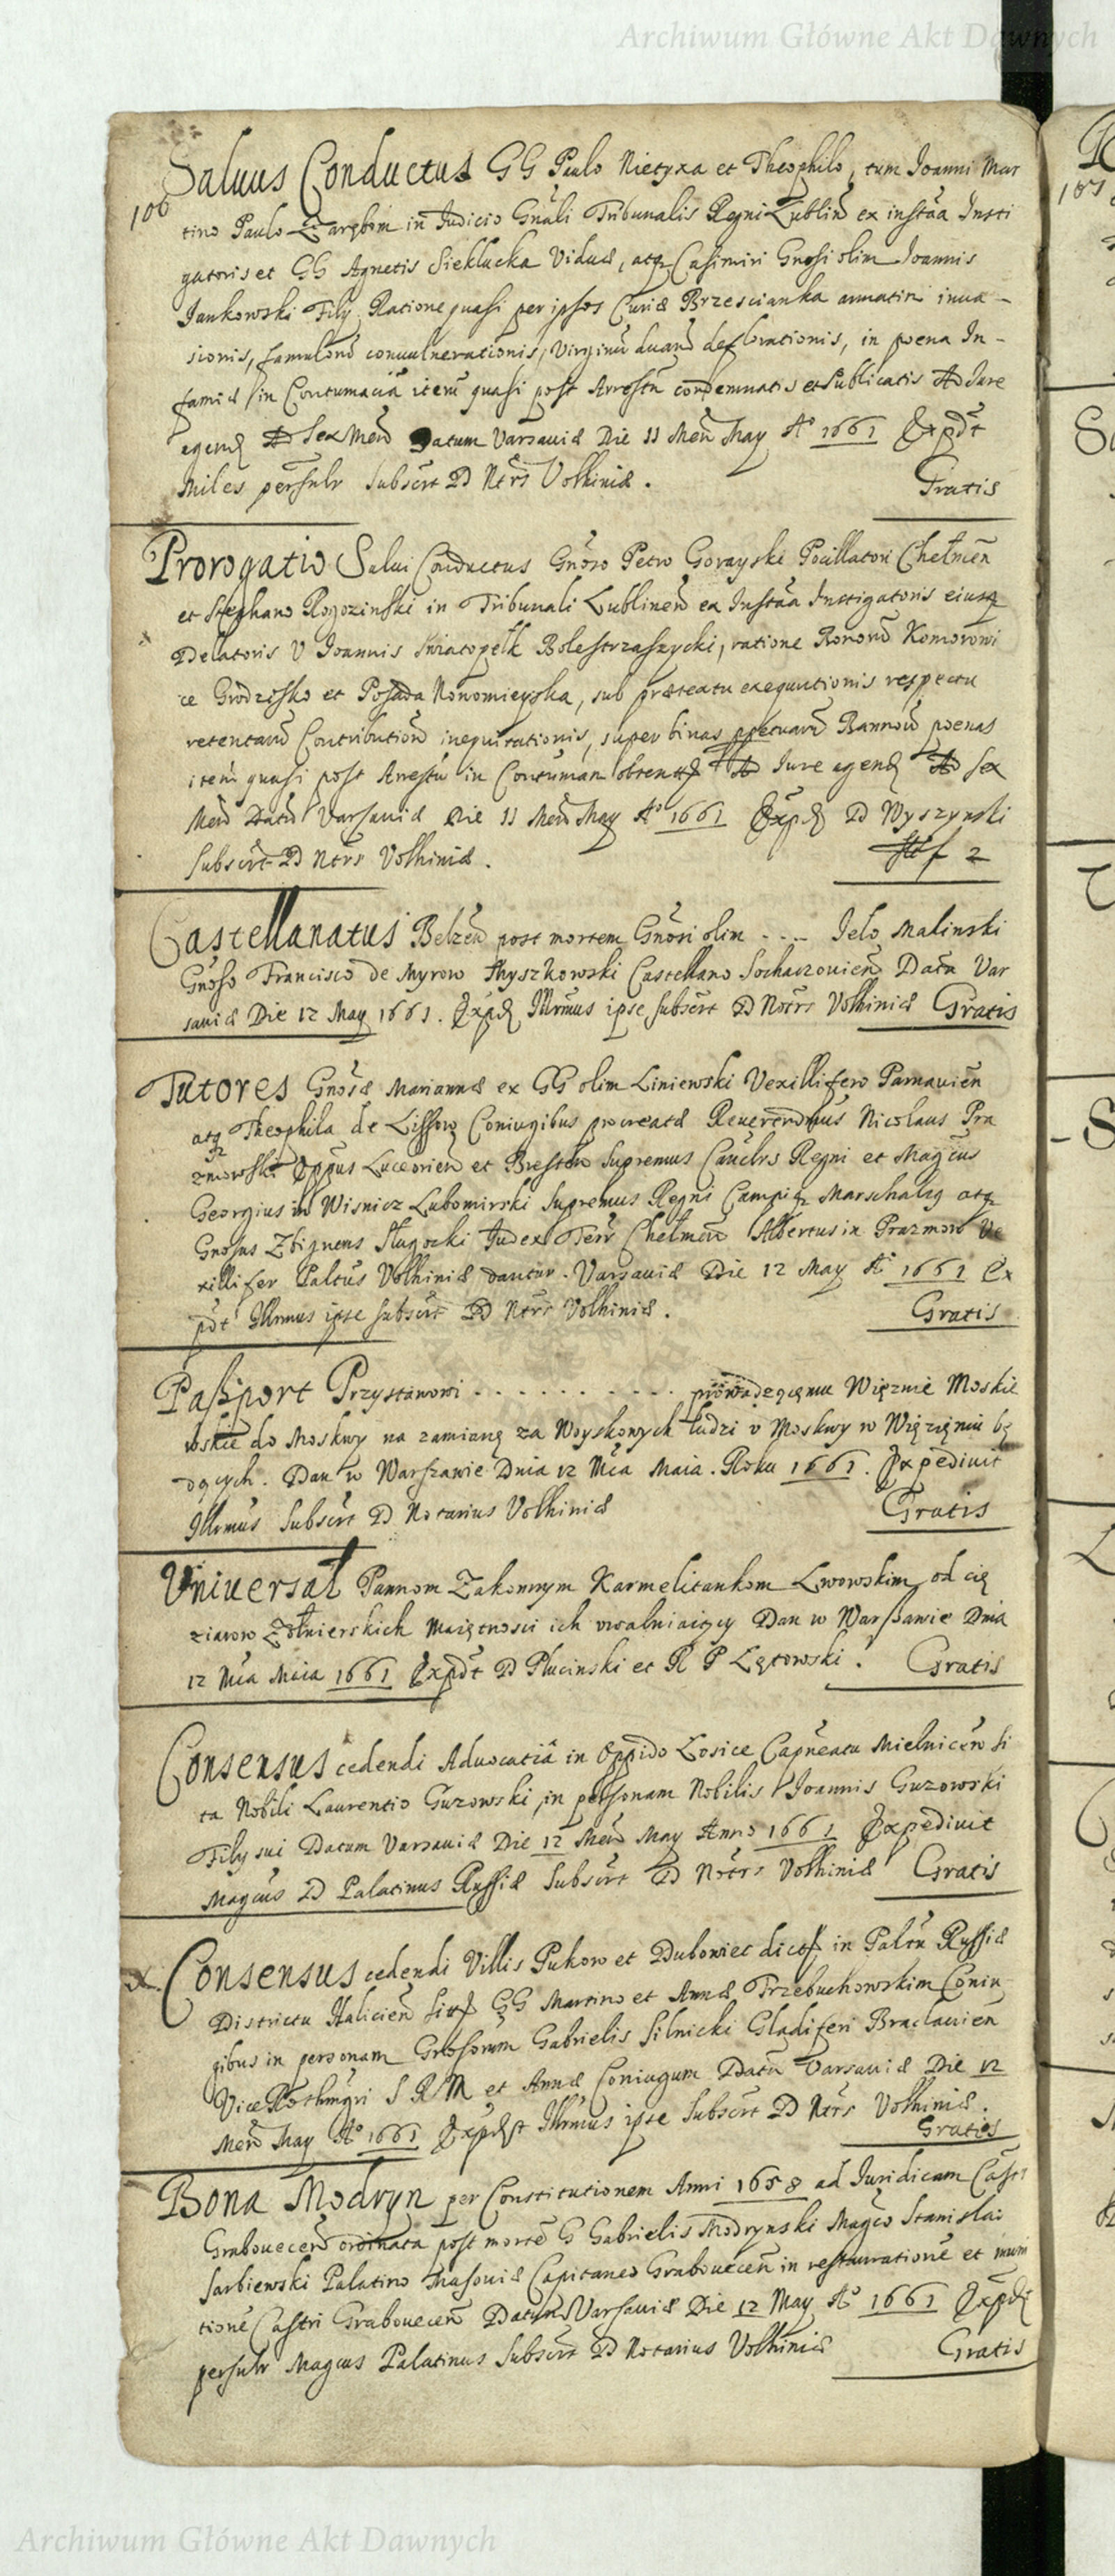 Archiwum Główne Akt Dawnych
106
Saluus Conductus GG Paulo Nietyxa et Theophilo, tum Joanni Mar
tino Paulo Zarębom in Judicio Gnãli Tribunalis Regni Lublin̄ ex instãa Insti
gatoris et GG Agnetis Sieklucka Viduæ, atq̃ Casimiri Gnosi olim Joannis
Jankowski Filij Ratione quasi per ipsos Curiæ Brzescianka armatim inua-
sionis, famulorũ conuulnerationis, Virginũ duarũ deflorationis, in pœna In-
famiæ in Contumaciã itẽm quasi post Arrestũ condemnatis et Publicatis Ad Jure
agend Ad Sex Men̄ Datum Varsauiæ Die 11 Men̄ May Aº 1661 Expdt
Miles persulr Subscrt D Ntrs Volhiniæ.
Gratis
Prorogatio Salui Conductus Gñoso Petro Gorayski Pocillatori Chełmen̄
et Stephano Rogozinski in Tribunali Lublinen̄ ex Instãa Instigatoris eiusq̃
Delatoris V Joannis Swiatopełk Bolestrzaszycki, ratione Bonorũ Komorowi
ce Grodzisko et Posada Nonomieyska, sub prætextu exequutionis respectu
retentarũ Contributionũ inequitationis, super binas ppetuarũ Bannorũ pœnas
item quasi post Arrestũ in Contumãn obtent Ad Jure agend Ad Sex
Men̄ Datũ Varsauiæ Die 11 Men̄ May Aº 1661 Exp D Wyszynski
Subscrt D Ntrs Volhiniæ.
f 2
Castellanatus Belzen̄ post mortem Gñosi olim .... Jelo Malinski
Gñoso Francisco de Myrow Myszkowski Castellano Sochaczouien̄ Data Var
sauiæ Die 12 May 1661. Expd Illrmus ipse Subscrt D Notrs Volhiniæ Gratis
Tutores Gñosæ Mariannæ ex GG olim Liniewski Vexillifero Parnauien̄
atq̃ Theophila de Lissow Coniugibus procreatæ Reuerendmus Nicolaus Pra
zmowski Eppus Luceorien̄ et Bresten̄ Supremus Canclrs Regni et Magcus
Georgius in Wisnicz Lubomirski Supremus Regni Campiq̃ Marschalcg atq̃
Gnosus Zbigneus Slugocki Judex Terr Chełmen̄ Albertus in Prazmow Ve
xillifer Paltus Volhiniæ dantur. Varsauiæ Die 12 May Aº 1661 Ex
pdt Illrmus ipse Subscrt D Ntrs Volhiniæ.
Gratis
Paszport Przystawowi .......... prowadzącemu Więznie Moskie
wskie do Moskwy na zamianę za Woyskowych ludzi v Moskwy w Więzięniu bę
dących. Dan w Warszawie Dnia 12 Mca Maia. Roku 1661. Expediuit
Illrmus Subscrt D Notarius Volhiniæ
Gratis
Vniuersał Pannom Zakonnym Karmelitankom Lwowskim, od cię
ziarow Zołnierskich Maiętnosci ich vwalniaiący Dan w Warszawie Dnia
12 Mca Maia 1661 Expdt D Plucinski et R P Lętowski.
Gratis
Consensus cedendi Aduocatiã in Oppido Łosice Capneatu Mielnicen̄ si
ta Nobili Laurentio Guzowski, in personam Nobilis Joannis Guzowski
Filij sui Datum Varsauiæ Die 12 Men̄ May Anno 1661 Expediuit
Magcus D Palatinus Russiæ Subscrt D Notrs Volhiniæ Gratis
Consensus cedendi Villis Pukow et Duboniec dict in Paltu Russiæ
Districtu Halicien̄ sit GG Martino et Annæ Trzebuchowskim Coniu
gibus in personam Gnosorum Gabrielis Silnicki Gladiferi Braclauien̄
Vice Rothmgri S R M et Annæ Coniugum Datũ Varsauiæ Die 12
Men̄ May Aº 1661 Expdt Illrmus ipse Subscrt D Ntrs Volhiniæ.
Gratis
Bona Modryn per Constitutionem Anni 1658 ad Juridicam Castri
Grabouecen̄ ordinata post mortẽ G Gabrielis Modrynski Magco Stanislao
Sarbiewski Palatino Masouiæ Capitaneo Grabouecen̄ in restaurationẽ et muni
tionẽ Castri Grabouecen̄ Datum Varsauiæ Die 12 May Aº 1661 Expd
persulr Magcus Palatinus Subscrt D Notarius Volhiniæ
Gratis
Archiwum Główne Akt Dawnych